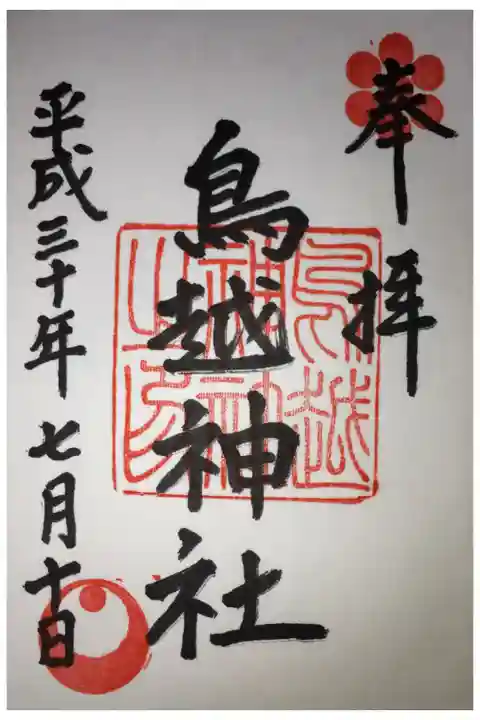 奉拝
鳥越神社
鳥越
神社
之印
平成三十年七月十日